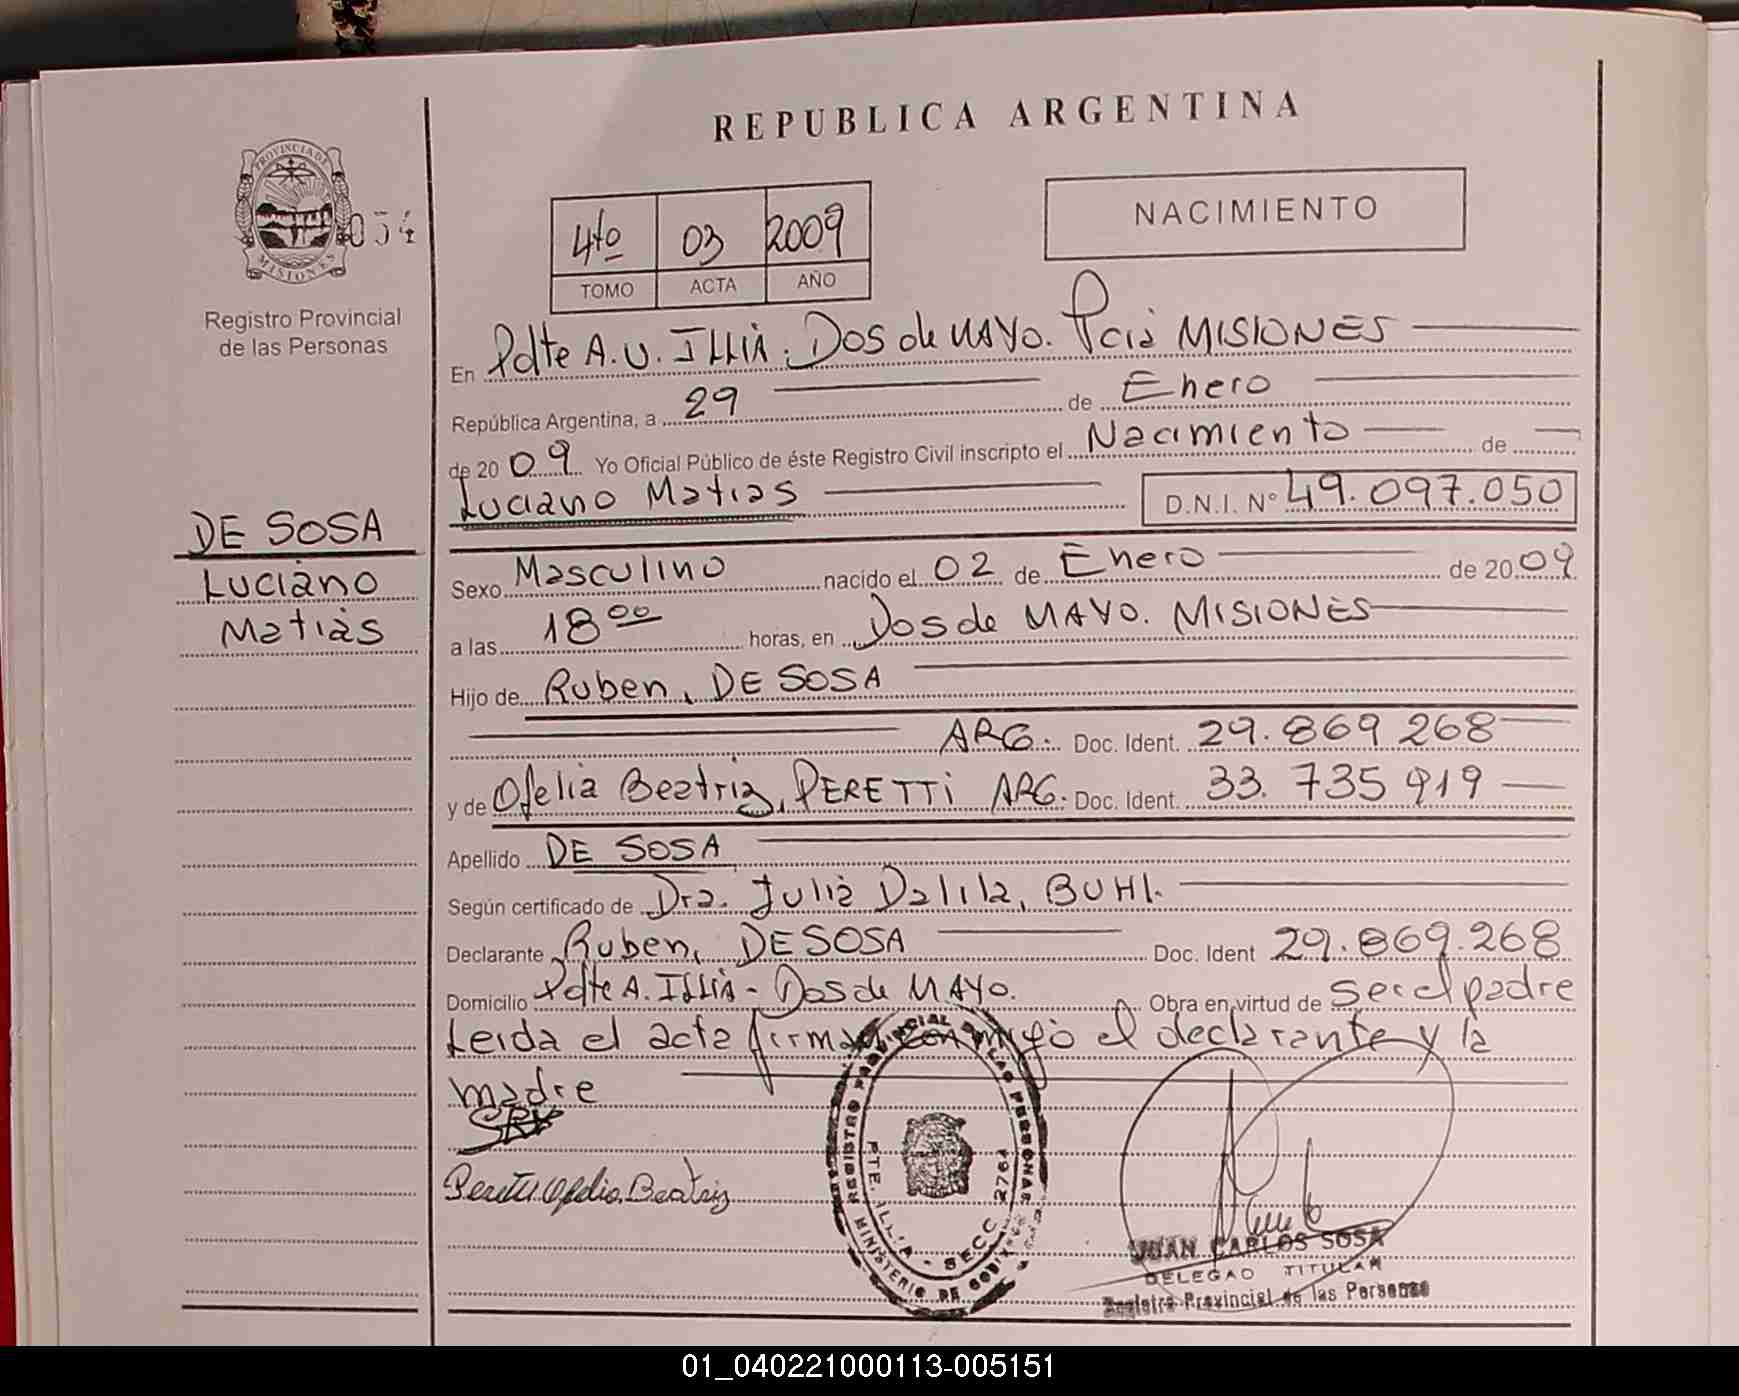 REPUBLICA ARGENTINA
PROVINCIA DE MISIONES
054
Registro Provincial
de las Personas
4to 03 2009
TOMO ACTA AÑO
NACIMIENTO
En Pdte A.U. ILLIA. DOS de MAYO. Pcia MISIONES
República Argentina, a 29 de Enero
de 2009 Yo Oficial Público de éste Registro Civil inscripto el Nacimiento de
Luciano Matias D.N.I. Nº 49.097.050
DE SOSA
Luciano
Matias
Sexo Masculino nacido el 02 de Enero de 2009
a las 18 00 horas, en Dos de MAYO. MISIONES
Hijo de Ruben, DE SOSA
ARG. Doc. Ident. 29.869 268
y de Ofelia Beatriz, PERETTI ARG. Doc. Ident. 33. 735 919
Apellido DE SOSA
Según certificado de Dra. Julia Dalila, BUHL.
Declarante Ruben, DE SOSA Doc. Ident 29.869.268
Domicilio Pdte A. ILLIA - Dos de MAYO. Obra en virtud de ser el padre
Leida el acta firma conmigo el declarante y la
madre
Peretti Ofelia Beatriz
REGISTRO PROVINCIAL DE LAS PERSONAS
PTE. ILLIA - SECC 2764
MINISTERIO DE GOBIERNO
JUAN CARLOS SOSA
DELEGADO TITULAR
Registro Provincial de las Personas
01_040221000113-005151